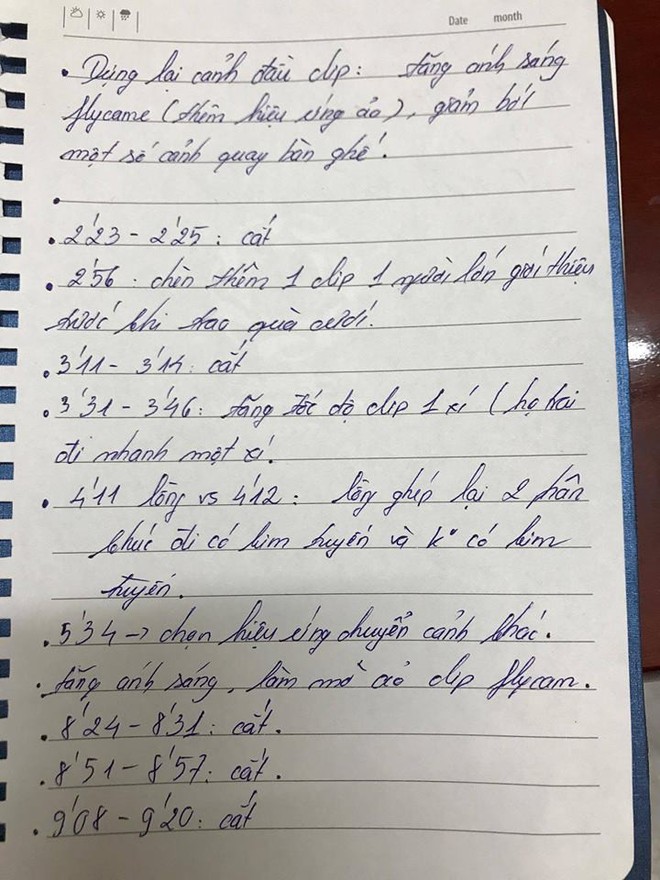 Date month
• Dựng lại cảnh đầu clip: tăng ánh sáng
flycame (thêm hiệu ứng ảo), giảm bớt
một số cảnh quay bàn ghế.
•
• 2'23 - 2'25: cắt
• 2'56: chèn thêm 1 clip 1 người lớn giới thiệu
trước khi trao quà cưới.
• 3'11 - 3'14: cắt
• 3'31 - 3'46: tăng tốc độ clip 1 xí (họ trai
đi nhanh một xí.
• 4'11 lồng vs 4'12: lồng ghép lại 2 phân
khúc đi có kim tuyến và k° có kim
tuyến.
• 5'34 -> chọn hiệu ứng chuyển cảnh khác.
• tăng ánh sáng, làm mờ ảo clip flycam.
• 8'24 - 8'31: cắt.
• 8'51 - 8'57: cắt.
• 9'08 - 9'20: cắt